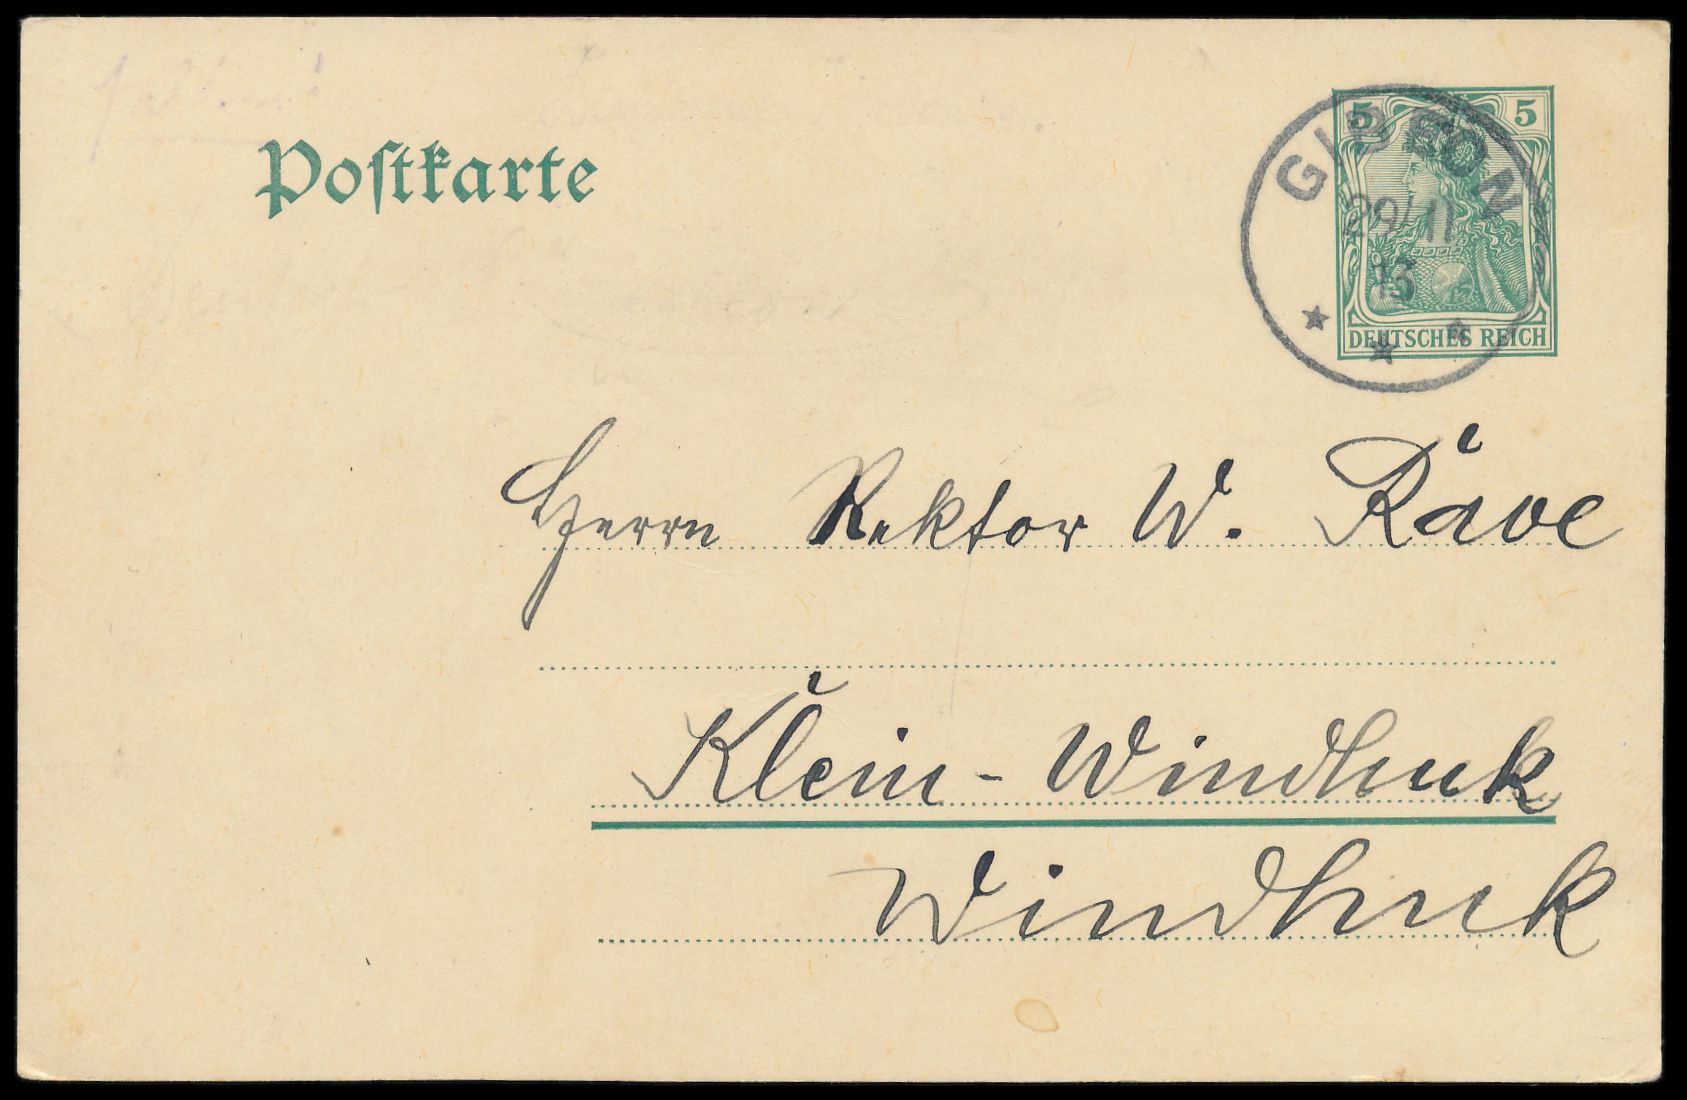 Postkarte
5 5
GIBEON
29/11
13
DEUTSCHES REICH
Herrn Rektor W. Räve
Klein-Windhuk
Windhuk